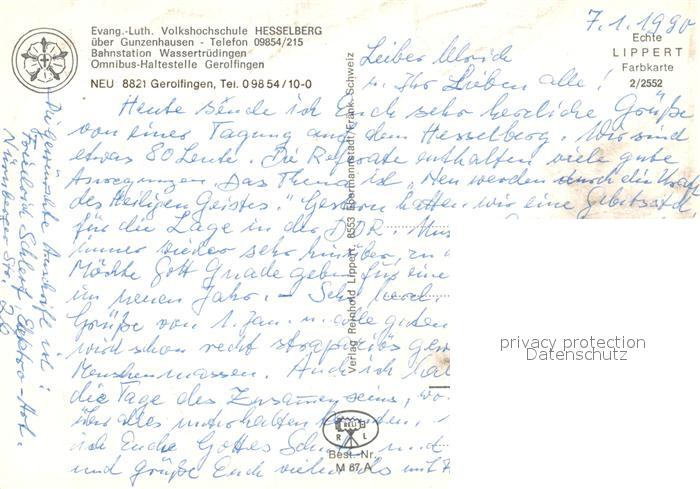 Evang.-Luth. Volkshochschule HESSELBERG
über Gunzenhausen - Telefon 09854/215
Bahnstation Wassertrüdingen
Omnibus-Haltestelle Gerolfingen
NEU 8821 Gerolfingen, Tel. 0 98 54 / 10-0
7.1.1990
Echte
LIPPERT
Farbkarte
2/2552
Lieber
u. Ihr Lieben alle!
Heute sende ich Euch sehr herzliche Grüße
von einer Tagung auf dem Hesselberg. Wir sind
etwas 80 Leute. Die Referate enthalten viele gute
Anregungen. Das Thema ist „Neu werden durch die Kraft
des Heiligen Geistes". Gestern hatten wir eine
für die Lage in der DDR.
immer wieder sehr
Möchte Gott Gnade geben für eine
im neuen Jahr. - Sehr
Grüße vom 1. Jan. u. alle guten
wird schon recht strapaziös
Menschenmassen. Auch ich
die Tage des Zusammenseins,
über alles unterhalten
ich Euch Gottes
und grüße Euch vielen
Die gewünschte Anschrift ist:
Friedrich Elektro-
Nürnberger Str.
Verlag Reinhold Lippert, 8553 Ebermannstadt/Fränk. Schweiz
RELI
R L
Best.-Nr.
M 67 A
privacy protection
Datenschutz